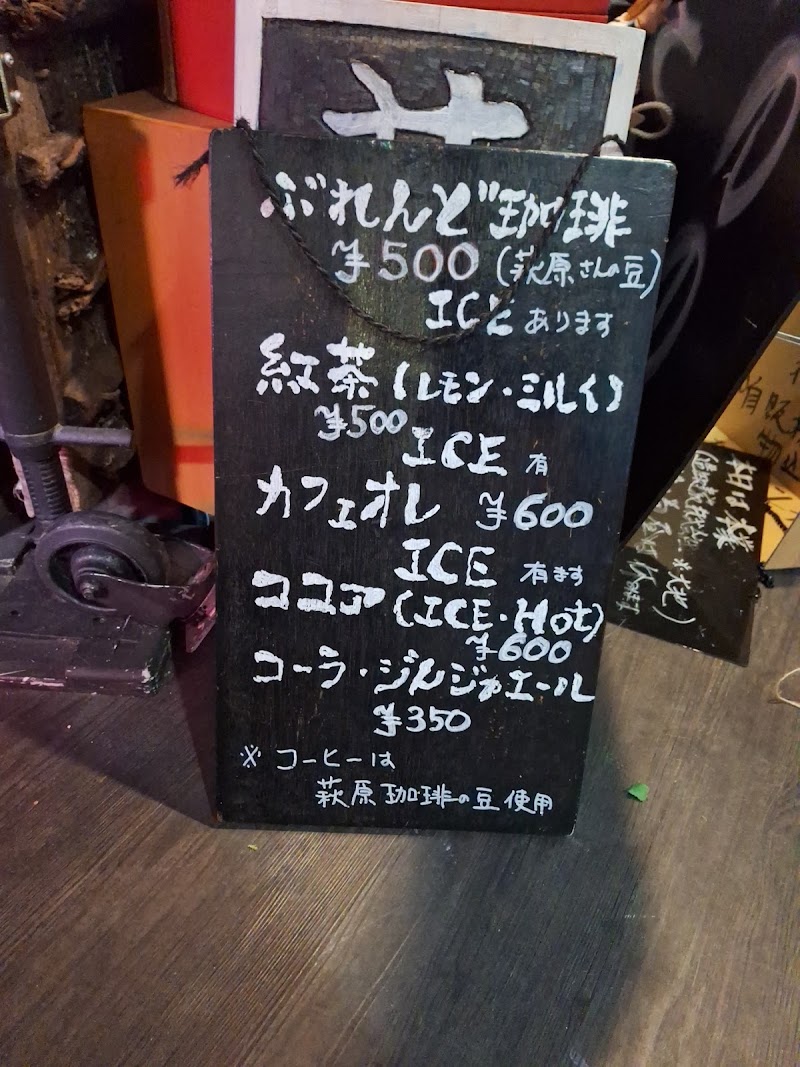 ぶれんど珈琲
¥500 (萩原さんの豆)
ICE あります
紅茶 (レモン・ミルク)
¥500
ICE 有
カフェオレ ¥600
ICE 有ます
ココア (ICE・Hot)
¥600
コーラ・ジンジャエール
¥350
※ コーヒーは
萩原珈琲の豆使用